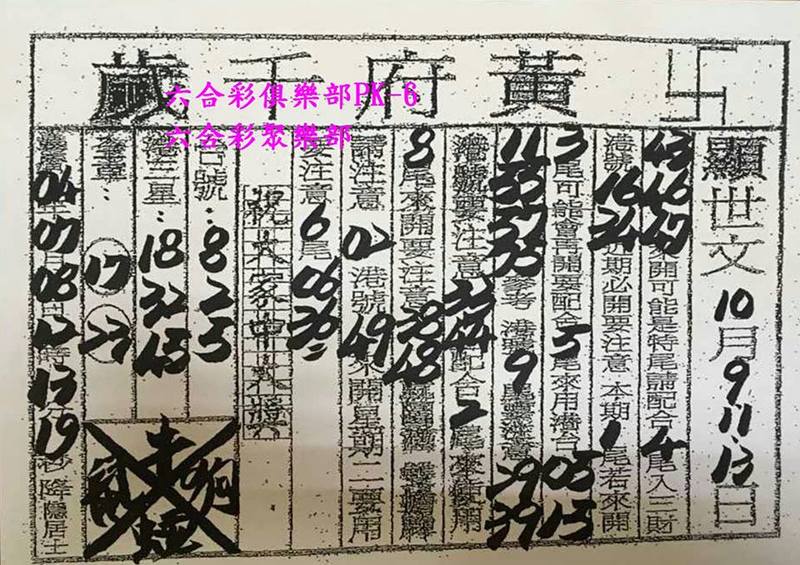 卐黃府千歲
六合彩俱樂部PK-6
六合彩眾樂部
顯世文10月9.11.13日
43 46 47來開可能是特尾請配合4尾入三財
港號16 34近期必開要注意 本期1尾若來開
3尾可能會再開要配合5尾來用港台05 15
11 33 37 35參考 港號9尾請注意39
港號要注意 配合2尾來使用
8尾來開要注意38 48
請注意02港號49來開星期二要用
要注意6尾06 36=
祝大家中大獎
台號:8 2 5
港三星:18 32 43
17 23
04 07月08日12時13分19秒降隱居士